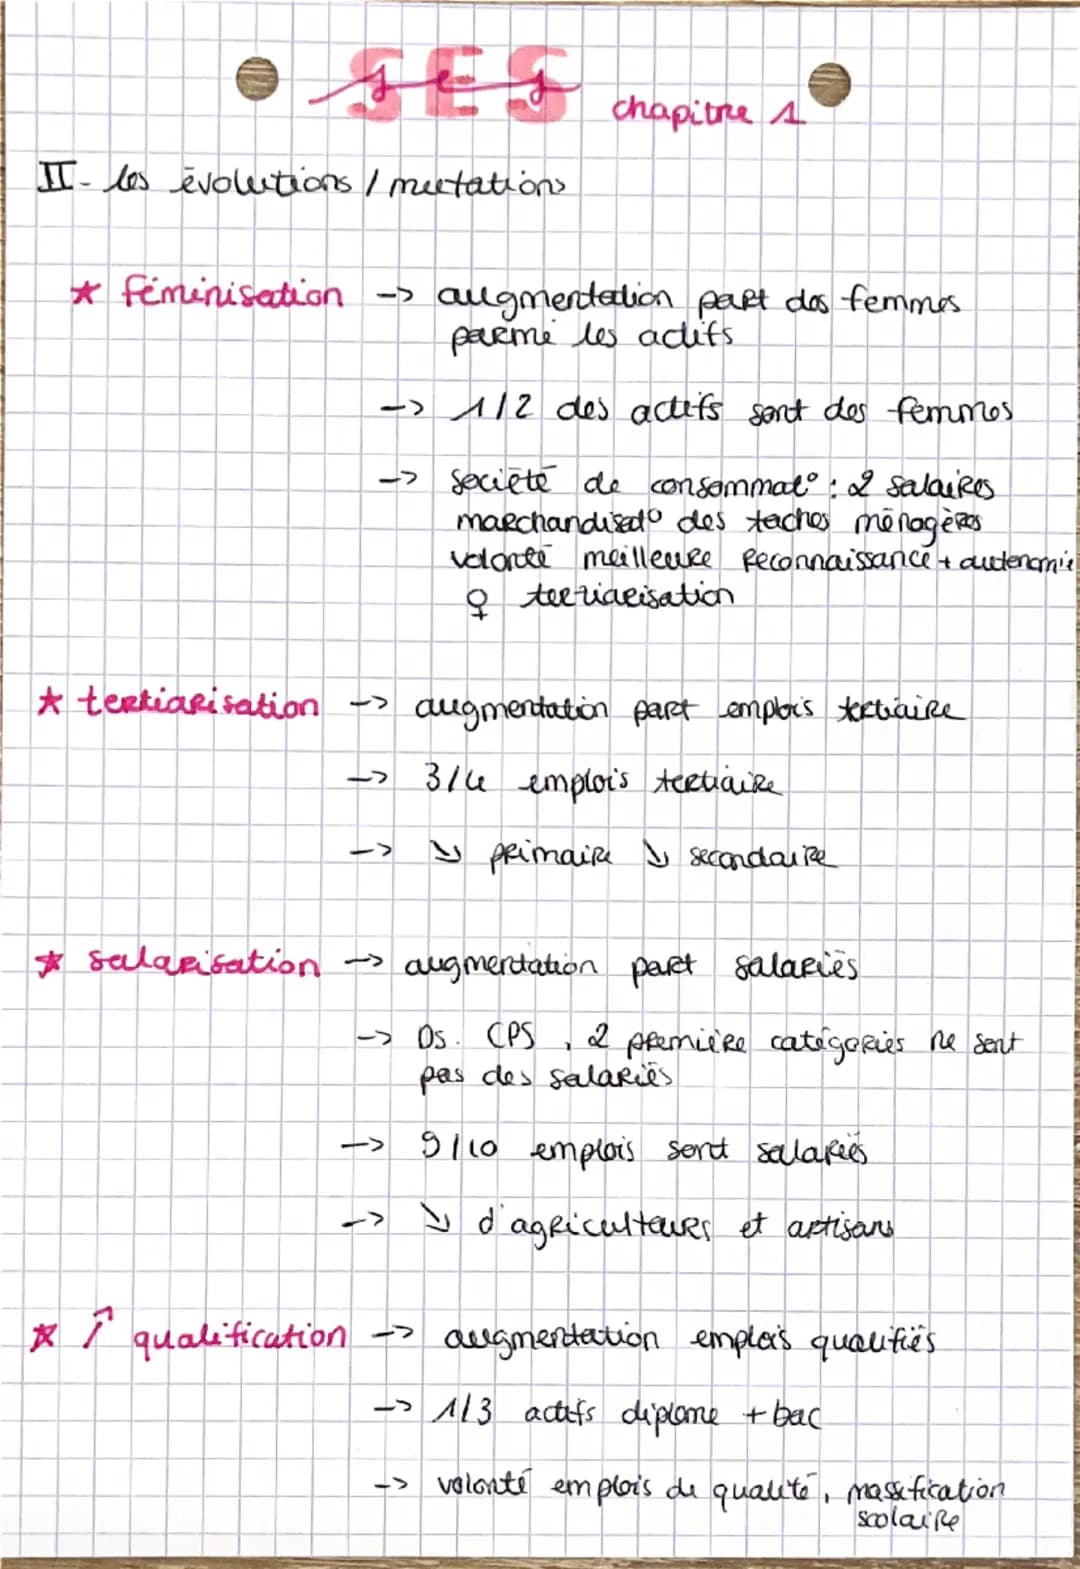 SES
ses
chapitre 1
II- les évolutions / mutations
★ féminisation -> augmentation part des femmes
parmi les actifs
-> 1/2 des actifs sont des femmes
-> société de consommat° : 2 salaires
marchandisat° des taches ménagères
volonté meilleure reconnaissance + autonomie
♀ tertiarisation
★ tertiarisation -> augmentation part emplois tertiaire
-> 3/4 emplois tertiaire
-> ↘ primaire ↘ secondaire
★ salarisation -> augmentation part salariés
-> Ds. CPS, 2 première catégories ne sont
pas des salariés
-> 9/10 emplois sont salariés
-> ↘ d'agriculteurs et artisans
★ ↗ qualification -> augmentation emplois qualifiés
-> 1/3 actifs diplome + bac
-> volonté emplois de qualité, massification
scolaire